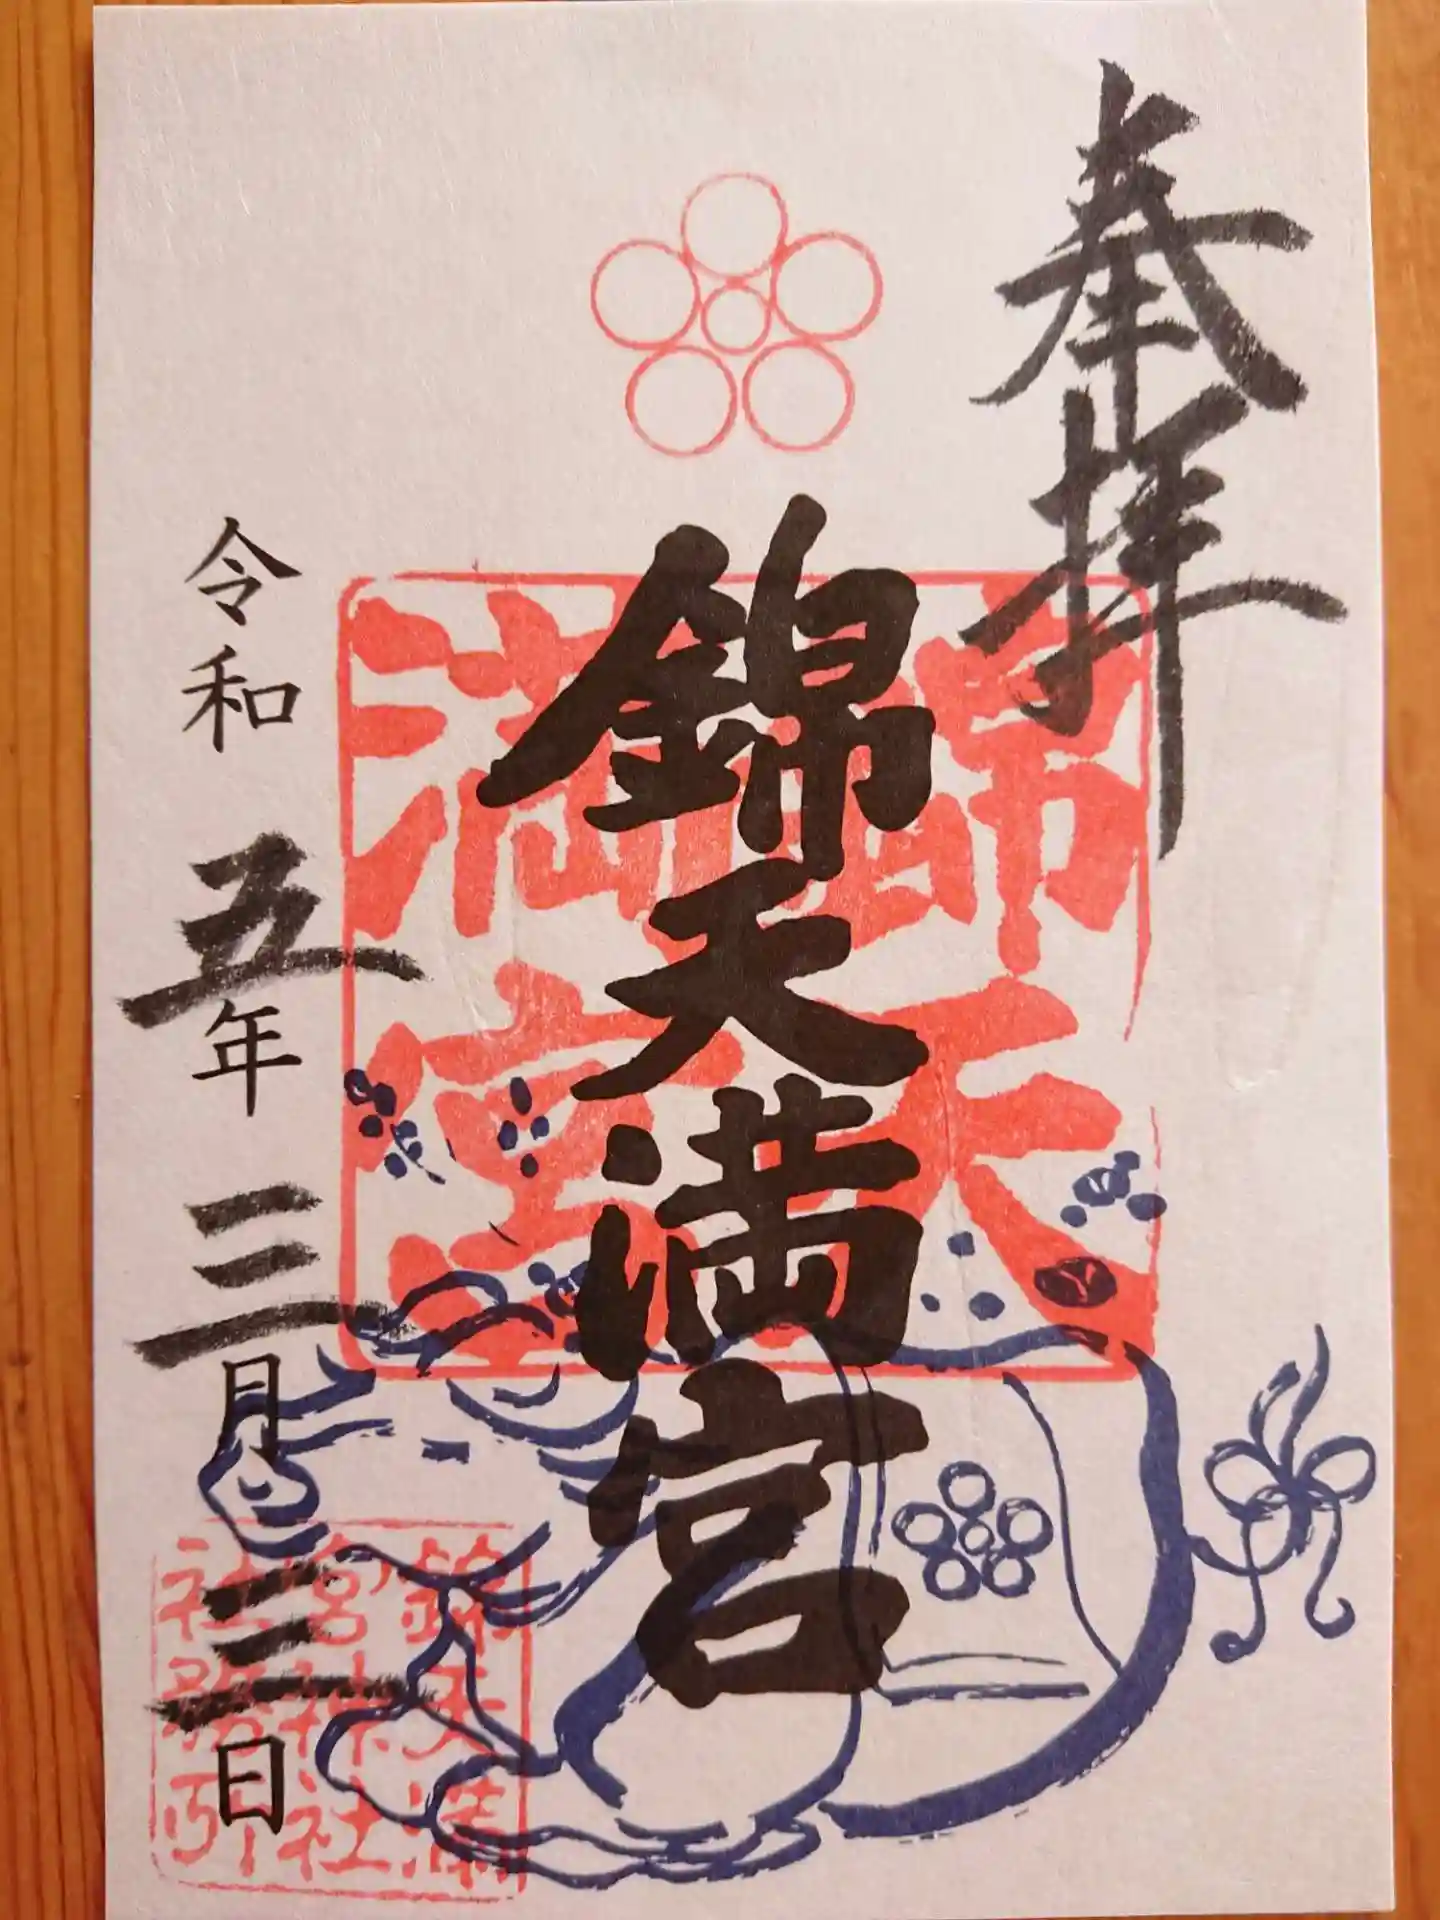 奉拝
錦天満宮
錦天
満宮
令和五年三月三日
錦天満
宮神社
社務所